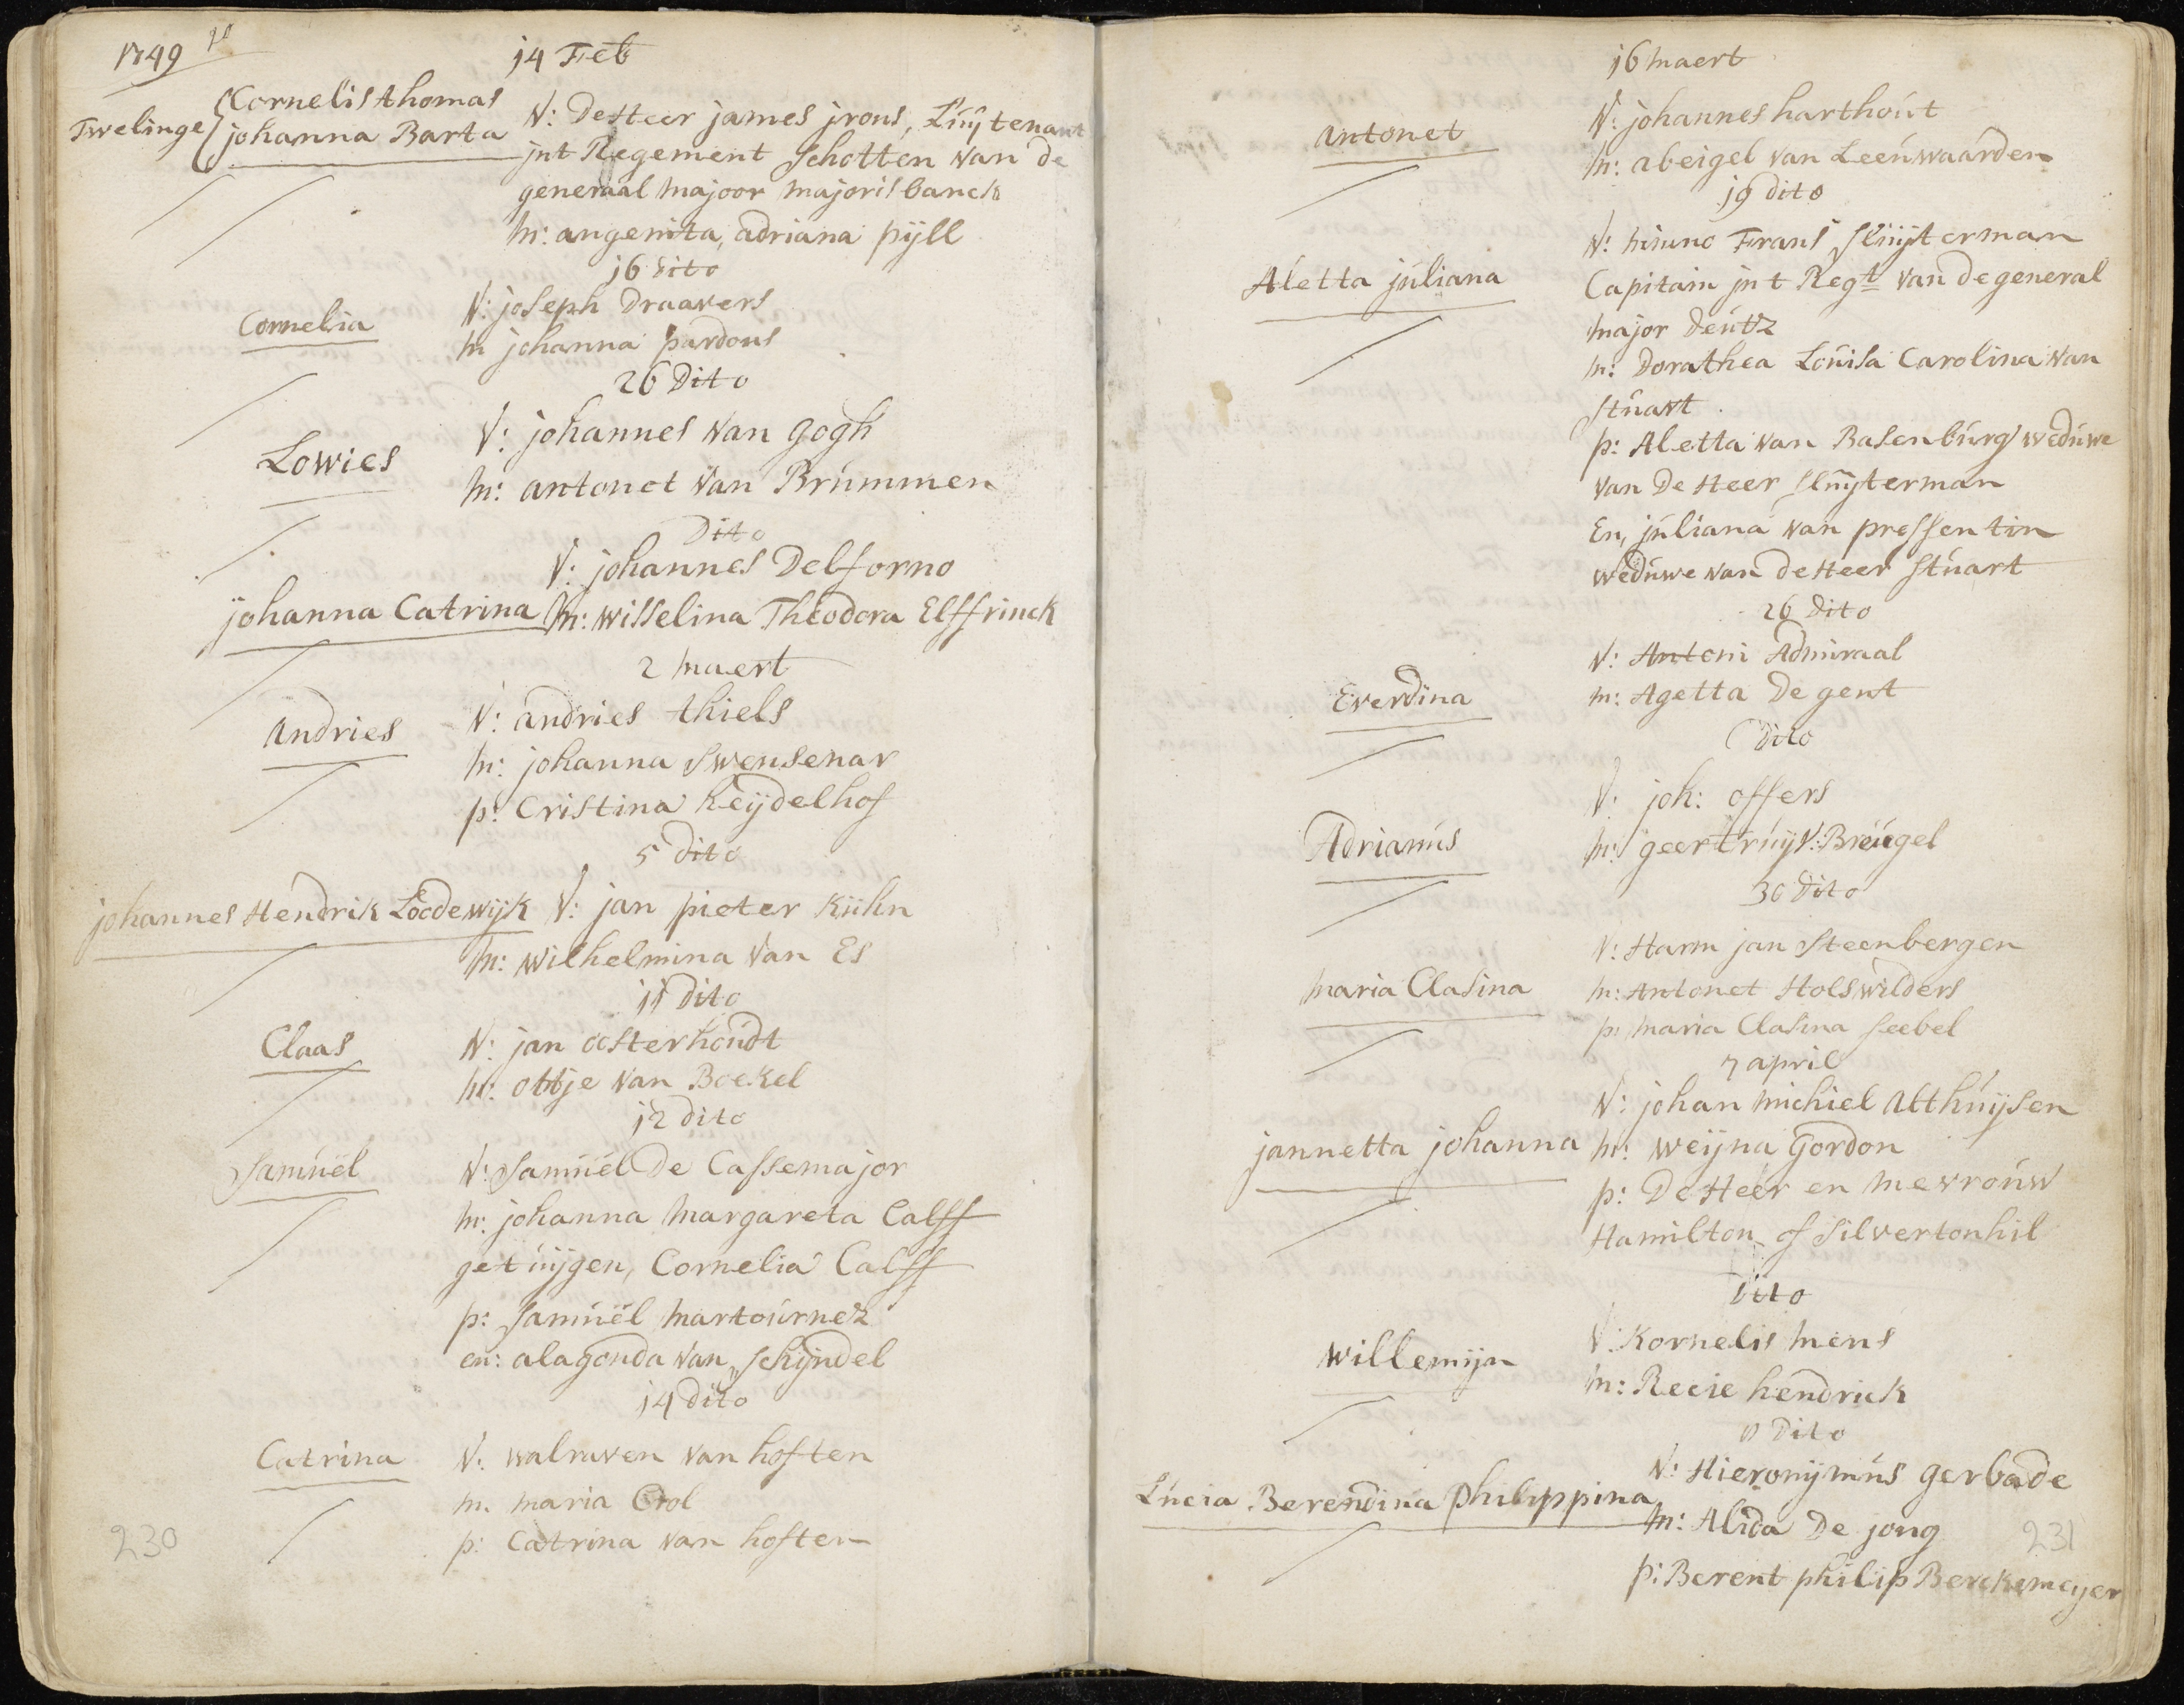 1749
14 Feb
Twelinge
Cornelis thomas
johanna Barta
V: De Heer james jrons, Luÿtenant
jnt Regement Schotten van de
generaal majoor majorisbanck
m: angenita, adriana pÿll
16 dito
Cornelia
V: joseph Draavers
m johanna pardons
26 Dito
Lowies
V: johannes van gogh
m: antonet van Brúmmen
Dito
V: johannes Delforno
johanna Catrina
m: wisselina Theodora Elffrinck
2 maert
Andries
V: andries thiels
m: johanna Swensenar
p: Cristina heÿdelhof
5 dito
johannes Hendrik Lodewijk
V: jan pieter Kühn
m: wilhelmina van Es
11 Dito
Claas
V: jan oosterhoúdt
m: ottje van Boekel
12 dito
Samúël
V: Samúël De Cassemajor
m: johanna margareta Calff
getúijgen, Cornelia Calff
p: Samúël martoúrnez
en: alagonda van Schÿndel
14 dito
Catrina
V: walraven van hoften
m. maria Crol
p: Catrina van hoften
230
16 maert
Antonet
V: johannes harthoút
m: abeigel van Leeúwaárden
19 dito
Aletta júliana
V: Frans Slúÿterman
Capitain jnt Regt van de general
major deútz
m: Dorathea Loúisa Carolina van
Stúart
p: Aletta van Basenbúrg wedúwe
van De Heer Slúÿterman
En, júliana van pressentin
wedúwe van de Heer Stúart
26 dito
Everdina
V: Antoni Admiraal
m: Agetta De gent
Dito
Adrianús
V: joh: offers
m: geertrúÿ V: Breúgel
30 Dito
maria Clasina
V: Harm jan Steenbergen
m: Antonet Holswilders
p: maria Clasina Seebel
7 april
jannetta johanna
V: johan michiel Atthúÿsen
m: weijna Gordon
p: De Heer en mevroúw
Hamilton of Silvertonhil
Dito
willemijn
V: Kornelis mens
m: Recie hendrick
Dito
Lúcia Berendina philippina
V: Hieronijmús gerbade
m: Alida De jong
p: Berent philip Berckemeyer
231